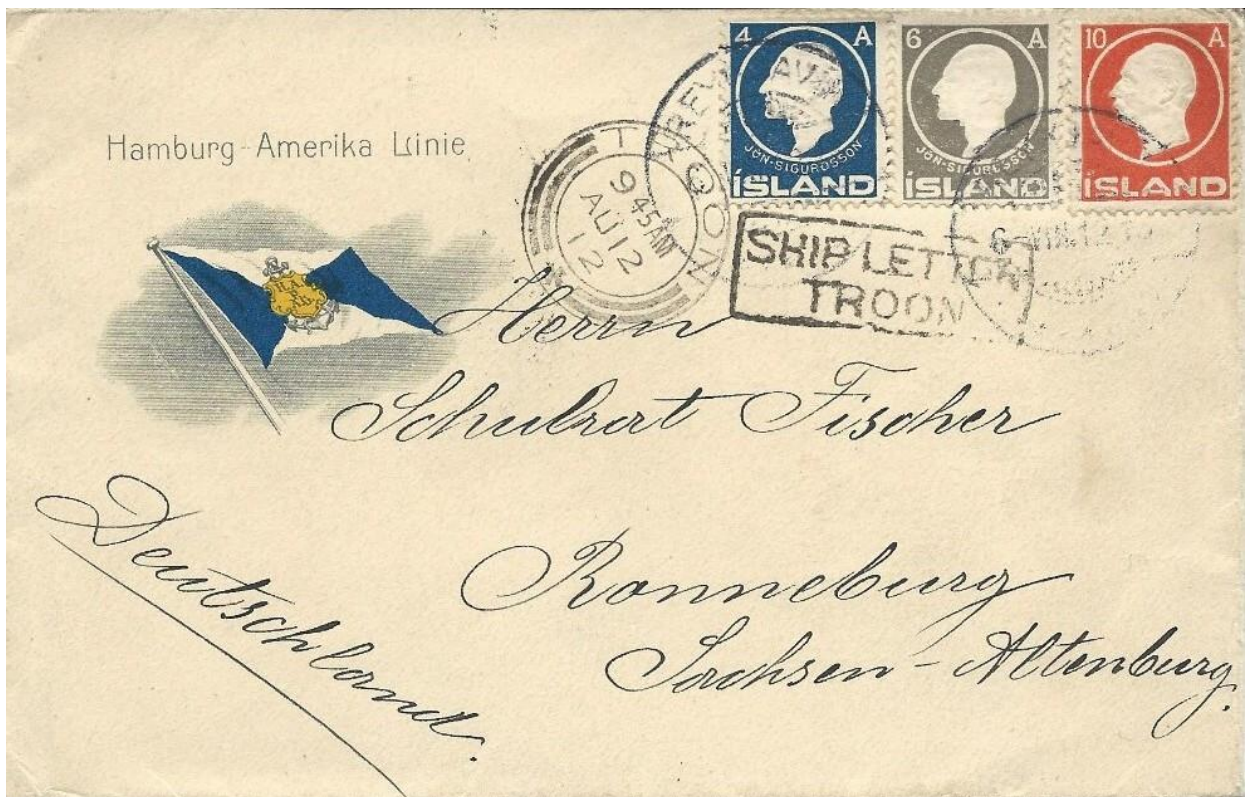 Hamburg-Amerika Linie
4 A
JÓN·SIGURÐSSON
ÍSLAND
6 A
JÓN·SIGURÐSSON
ÍSLAND
10 A
ÍSLAND
TROON
9 45AM
AU 12
12
SHIP LETTER
TROON
Herrn
Schulrat Fischer
Ronneburg
Sachsen-Altenburg.
Deutschland.